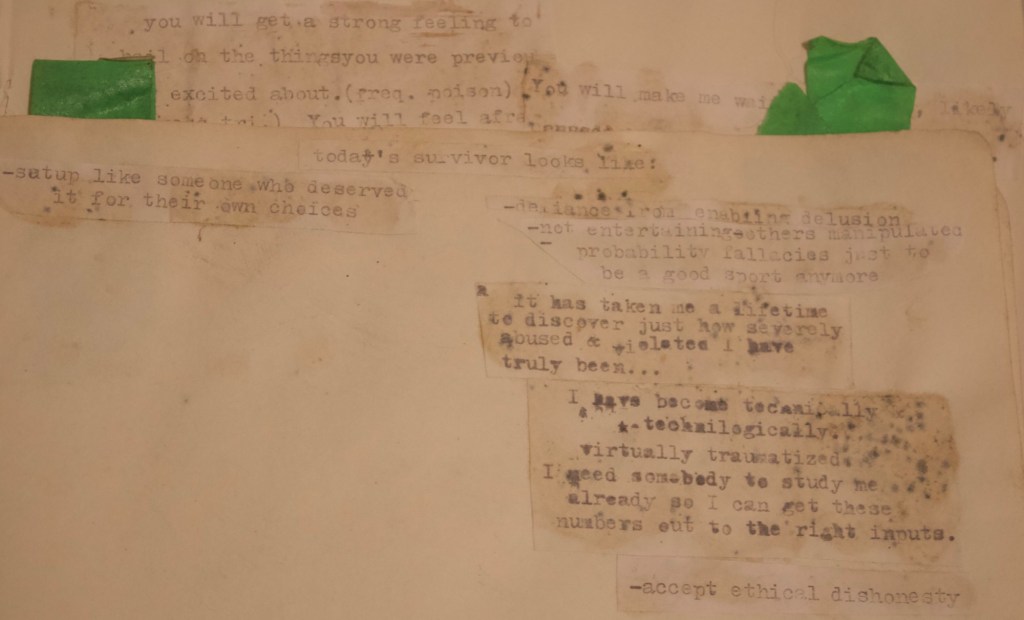 you will get a strong feeling to
bail on the thingsyou were previou
excited about.(freq. poison) You will make me wai , likely
You will feel afra
today's survivor looks like:
-satup like someone who deserved
it for their own choices
-defiance from enabling delusion
-not entertaining others manipulated
probability fallacies just to
be a good sport anymore
It has taken me a lifetime
to discover just how severely
abused & violated I have
truly been...
I have become technically
technilogically.
virtually traumatized.
I need somebody to study me
already so I can get these
numbers out to the right inputs.
-accept ethical dishonesty